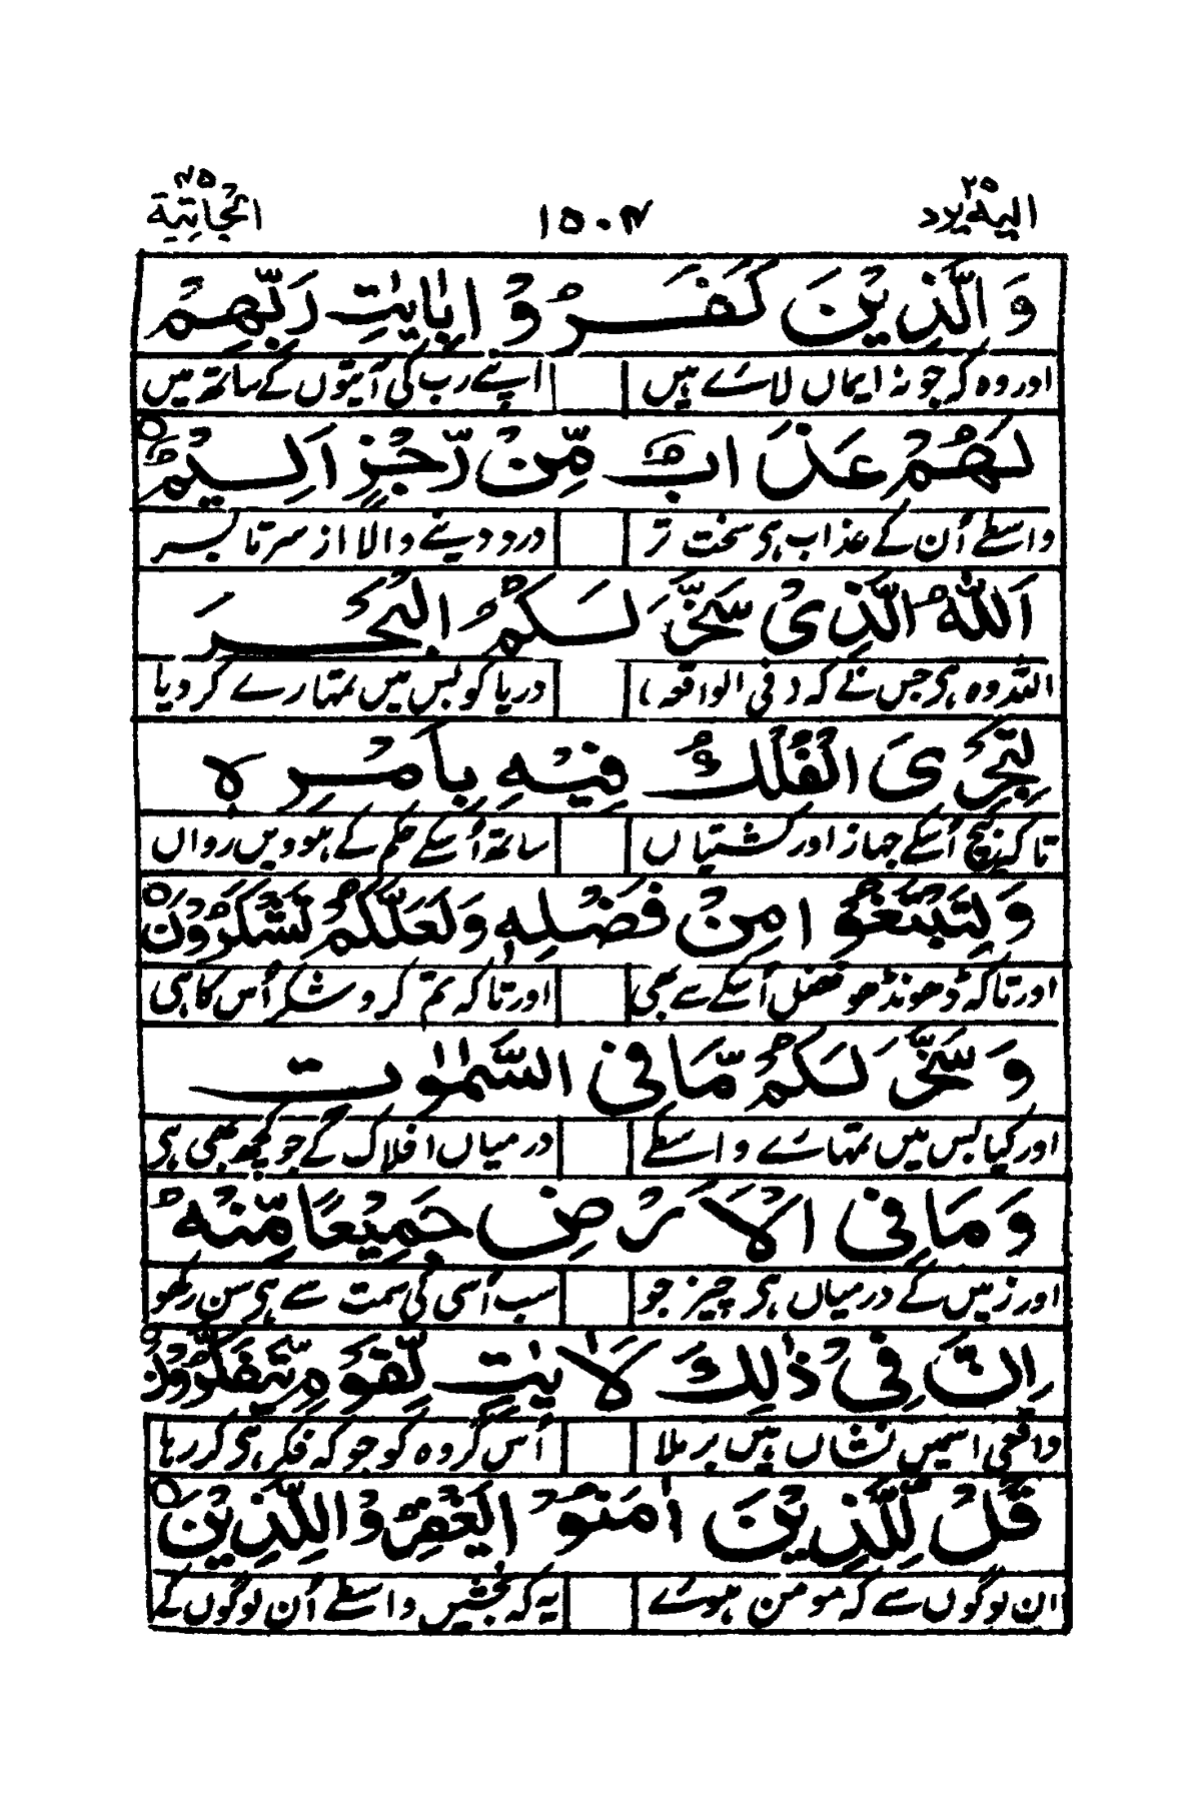 الیہ یرد ۲۵ ۱۵۰۴ الجاثیة ۴۵
وَالَّذِيْنَ كَفَرُوْا بِاٰيٰتِ رَبِّهِمْ
اور وہ کہ جو نہ ایماں لائے ہیں اپنے رب کی آیتوں کے ساتھ میں
لَهُمْ عَذَابٌ مِّنْ رِّجْزٍ اَلِيْمٌ ○
واسطے اُن کے عذاب ہی سخت تر درد دینے والا از سر تا بسر
اَللّٰهُ الَّذِيْ سَخَّرَ لَكُمُ الْبَحْرَ
اللہ وہ ہی جس نے کہ (فی الواقعہ) دریا کو بس میں تمہارے کر دیا
لِتَجْرِيَ الْفُلْكُ فِيْهِ بِاَمْرِهٖ
تا کہ بیچ اُسکے جہاز اور کشتیاں ساتھ اُسکے حکم کے ہوویں رواں
وَلِتَبْتَغُوْا مِنْ فَضْلِهٖ وَلَعَلَّكُمْ تَشْكُرُوْنَ ○
اور تا کہ ڈھونڈھو فضل اُسکے سے بھی اور تا کہ تم کرو شکر اُس کا ہی
وَسَخَّرَ لَكُمْ مَّا فِي السَّمٰوٰتِ
اور کیا بس میں تمہارے واسطے درمیاں افلاک کے جو کچھ بھی ہی
وَمَا فِي الْاَرْضِ جَمِيْعًا مِّنْهُ
اور زمیں کے درمیاں ہی چیز جو سب اُسی کی سمت سے ہی سن رکھو
اِنَّ فِيْ ذٰلِكَ لَاٰيٰتٍ لِّقَوْمٍ يَّتَفَكَّرُوْنَ ○
واقعی اسمیں نشاں ہیں بر ملا اُس گروہ کو جو کہ فکر ہی کر رہا
قُلْ لِّلَّذِيْنَ اٰمَنُوْا يَغْفِرُوْا لِلَّذِيْنَ
ان لوگوں سے کہ مومن ہوئے یہ کہ بخشیں واسطے اُن لوگوں کے